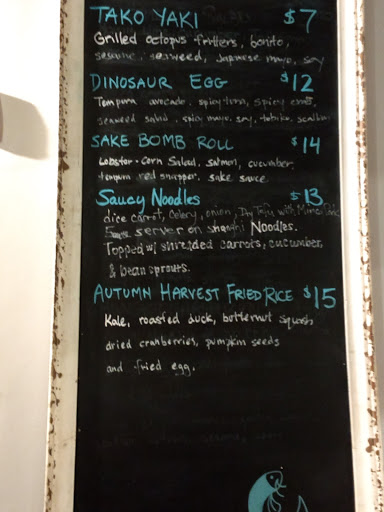 TAKO YAKI $7
Grilled octopus fritters, bonito,
sesame, seaweed, Japanese mayo, soy
DINOSAUR EGG $12
Tempura avocado, spicy tuna, spicy crab,
seaweed salad, spicy mayo, soy, tobiko, scallion
SAKE BOMB ROLL $14
Lobster + Corn Salad, salmon, cucumber,
tempura red snapper, sake sauce.
Saucy Noodles $13
dice carrot, Celery, onion, Dry Tofu with Mince Pork
server on shanghi Noodles.
Topped w/ shredded carrots, cucumber,
& bean sprouts.
AUTUMN HARVEST FRIED RICE $15
Kale, roasted duck, butternut squash
dried cranberries, pumpkin seeds
and fried egg.